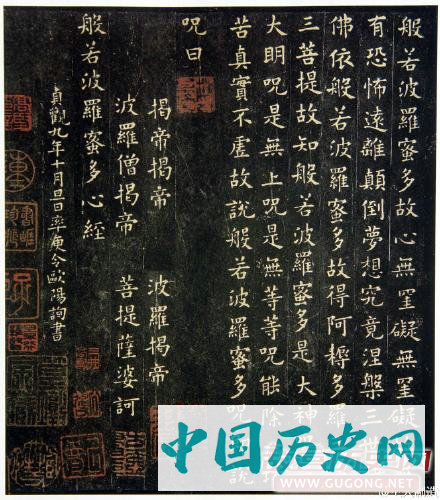 般若波羅蜜多故心無罣礙無罣礙
有恐怖遠離顛倒夢想究竟涅槃三世
佛依般若波羅蜜多故得阿耨多羅
三菩提故知般若波羅蜜多是大神
大明咒是無上咒是無等等咒能除
苦真實不虛故說般若波羅蜜多咒
咒曰
揭帝揭帝 波羅揭帝
波羅僧揭帝 菩提薩婆訶
般若波羅蜜多心經
貞觀九年十月旦日率更令歐陽詢書
中国历史网
WWW.GUGONG.NET